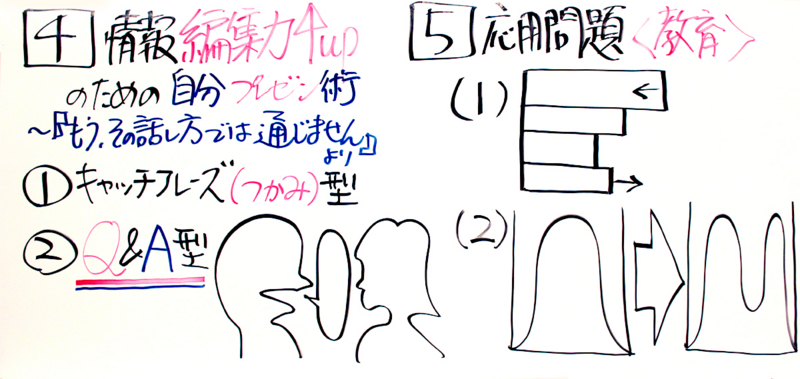 4 情報編集力↑up
のための自分プレゼン術
～『もう、その話し方では通じません』
より
①キャッチフレーズ(つかみ)型
②Q&A型
5 応用問題〈教育〉
(1)
(2)